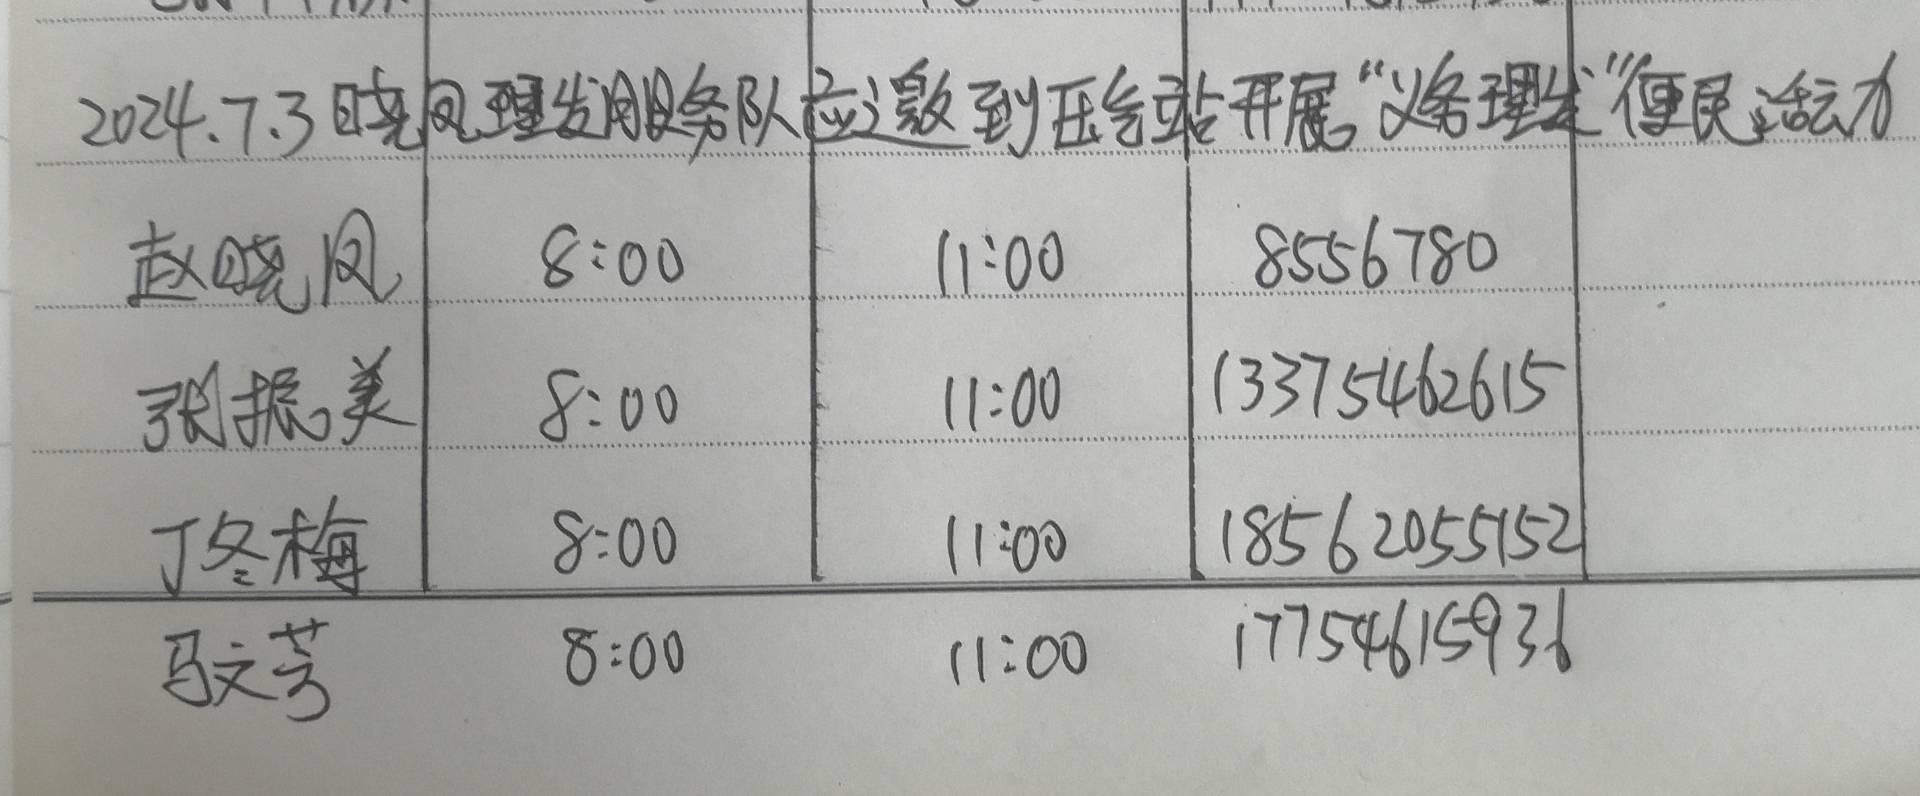 2024.7.3日晓凤理发服务队应邀到压气站开展“义务理发”便民活动
赵晓凤 8:00 11:00 8556780
张振美 8:00 11:00 13375462615
丁冬梅 8:00 11:00 18562055152
马文芳 8:00 11:00 17754615936